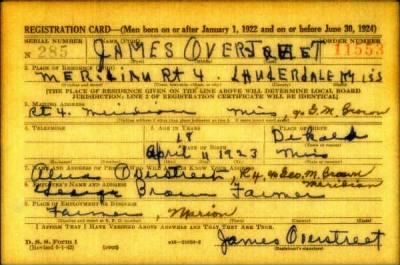 REGISTRATION CARD—(Men born on or after January 1, 1922 and on or before June 30, 1924)
SERIAL NUMBER 1. NAME (Print) ORDER NUMBER
N 285 JAMES OVERSTREET 11553
2. PLACE OF RESIDENCE (Print)
MERIDIAN RT 4. LAUDERDALE MISS
[THE PLACE OF RESIDENCE GIVEN ON THE LINE ABOVE WILL DETERMINE LOCAL BOARD
JURISDICTION; LINE 2 OF REGISTRATION CERTIFICATE WILL BE IDENTICAL]
3. MAILING ADDRESS
Rt 4. Miss % G. M. Brown
4. TELEPHONE 5. AGE IN YEARS 6. PLACE OF BIRTH
18
DATE OF BIRTH
April 11 1923 Miss
7. NAME AND ADDRESS OF PERSON WHO WILL ALWAYS KNOW YOUR ADDRESS
Overstreet R 4, % Geo. M. Brown
8. EMPLOYER'S NAME AND ADDRESS Meridian
George Brown Farmer
9. PLACE OF EMPLOYMENT OR BUSINESS
Farmer, Marion
I AFFIRM THAT I HAVE VERIFIED ABOVE ANSWERS AND THAT THEY ARE TRUE.
D. S. S. Form 1
James Overstreet